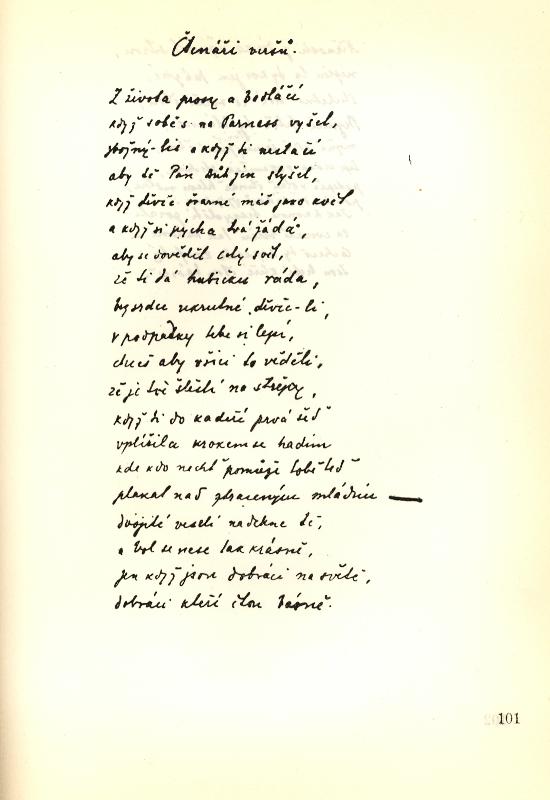 Čtenáři veršů.
Z života prosy a bodláčí
když sobě's na Parnass vyšel,
zbožný-lis a když ti nestačí
aby tě Pán Bůh jen slyšel,
když děvče švarné máš jako květ
a když si pýcha tvá žádá,
aby se dověděl celý svět,
že ti dá hubičku ráda,
by srdce ukrutné děvče-li,
v podpatky tobě si lepí,
chceš aby všici to věděli,
že je tvé štěstí na střepy,
když ti do kadeří prvá šeď
vplížila krokem se hadím
kde kdo nechť pomůže tobě teď
plakat nad ztraceným mládím —
dvojité veselí nadchne tě,
a bol se nese tak krásně,
jen když jsou dobráci na světě,
dobráci kteří čtou básně.
101